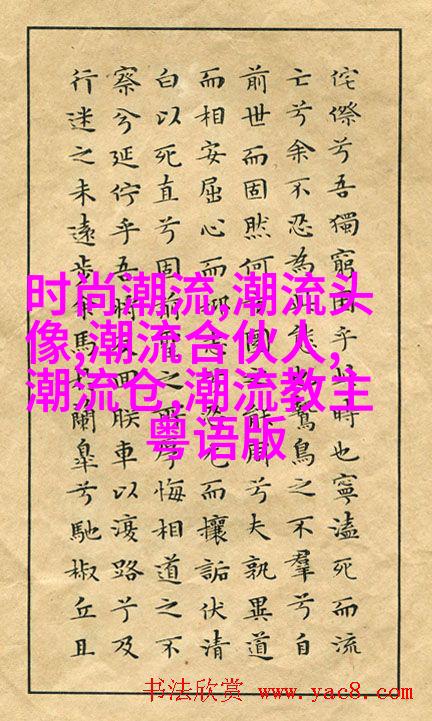 侘傺兮吾獨窮困乎時也寧溘死而流
亡兮余不忍為此態也鷙鳥之不羣兮自
前世而固然何能周兮夫孰異道
而相安屈心而尤而攘詬伏清
白以死直兮固前之厚悔相道之不
察兮延佇乎吾將回朕車以復路兮及
行迷之未遠步余馬於蘭皋兮馳椒丘且
时尚潮流,潮流头
像,潮流合伙人,
潮流仓,潮流教主
粤语版
书法欣赏 www.yac8.com